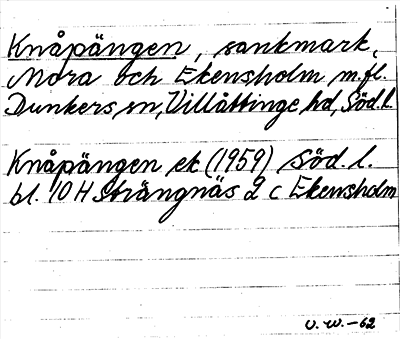 Knåpängen, sankmark,
Mora och Ekensholm m.fl.
Dunkers sn, Villåttinge hd, Söd.l.
Knåpängen ek (1959) Söd. l.
bl. 10 H Strängnäs 2 c Ekensholm
U. W. -62